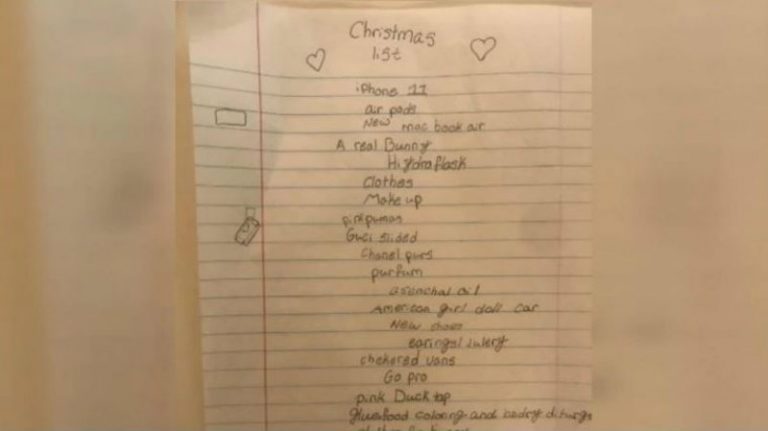 Christmas
list
iPhone 11
air pods
New mac book air
A real Bunny
Hydroflask
Clothes
Make up
pink pumas
Guci slided
Chanel purs
purfum
American girl doll car
New shoes
earings/ julery
chekered vans
Go pro
pink Duck tap
food coloring and